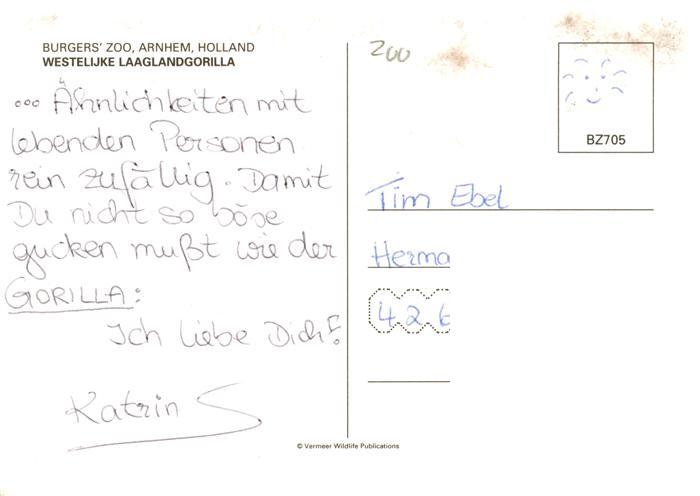 BURGERS' ZOO, ARNHEM, HOLLAND
WESTELIJKE LAAGLANDGORILLA
... Ähnlichkeiten mit
lebenden Personen
rein zufällig. Damit
Du nicht so böse
gucken mußt wie der
GORILLA:
Ich liebe Dich!
Katrin S
ZOO
BZ705
Tim Ebel
Herma
42
© Vermeer Wildlife Publications